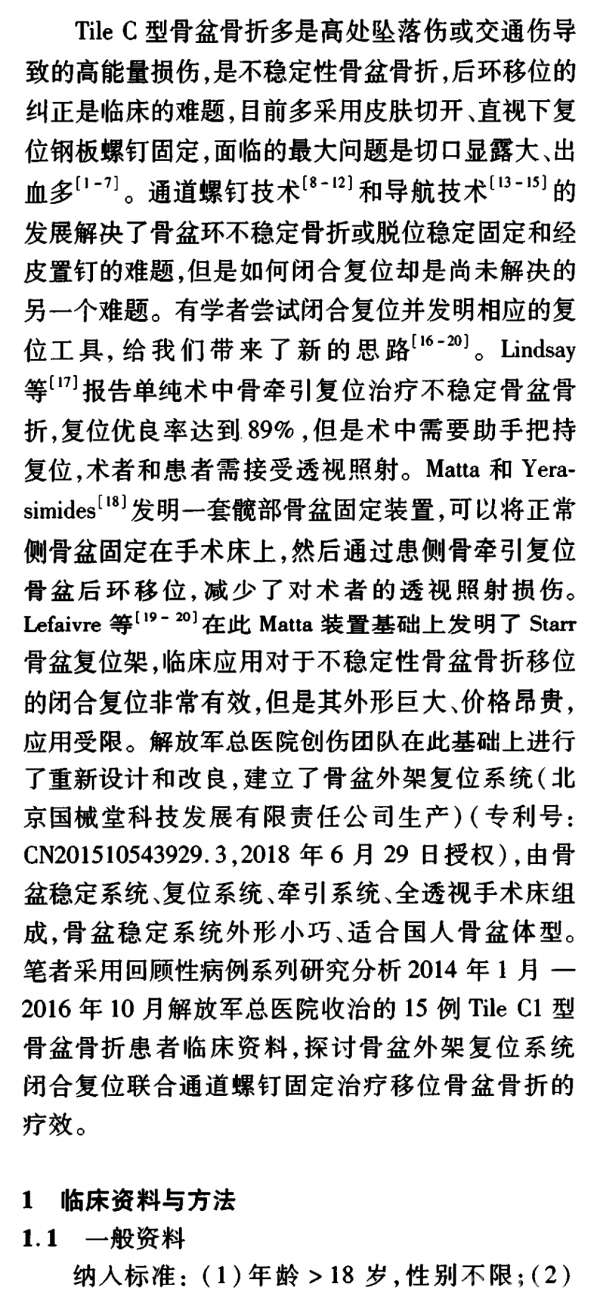 Tile C 型骨盆骨折多是高处坠落伤或交通伤导
致的高能量损伤,是不稳定性骨盆骨折,后环移位的
纠正是临床的难题,目前多采用皮肤切开、直视下复
位钢板螺钉固定,面临的最大问题是切口显露大、出
血多[1-7]。通道螺钉技术[8-12]和导航技术[13-15]的
发展解决了骨盆环不稳定骨折或脱位稳定固定和经
皮置钉的难题,但是如何闭合复位却是尚未解决的
另一个难题。有学者尝试闭合复位并发明相应的复
位工具,给我们带来了新的思路[16-20]。Lindsay
等[17]报告单纯术中骨牵引复位治疗不稳定骨盆骨
折,复位优良率达到 89%,但是术中需要助手把持
复位,术者和患者需接受透视照射。Matta 和 Yera-
simides[18]发明一套髋部骨盆固定装置,可以将正常
侧骨盆固定在手术床上,然后通过患侧骨牵引复位
骨盆后环移位,减少了对术者的透视照射损伤。
Lefaivre 等[19-20]在此 Matta 装置基础上发明了 Starr
骨盆复位架,临床应用对于不稳定性骨盆骨折移位
的闭合复位非常有效,但是其外形巨大、价格昂贵,
应用受限。解放军总医院创伤团队在此基础上进行
了重新设计和改良,建立了骨盆外架复位系统(北
京国械堂科技发展有限责任公司生产)(专利号:
CN201510543929.3,2018 年 6 月 29 日授权),由骨
盆稳定系统、复位系统、牵引系统、全透视手术床组
成,骨盆稳定系统外形小巧、适合国人骨盆体型。
笔者采用回顾性病例系列研究分析 2014 年 1 月 —
2016 年 10 月解放军总医院收治的 15 例 Tile C1 型
骨盆骨折患者临床资料,探讨骨盆外架复位系统
闭合复位联合通道螺钉固定治疗移位骨盆骨折的
疗效。
1 临床资料与方法
1.1 一般资料
纳入标准:(1)年龄>18 岁,性别不限;(2)